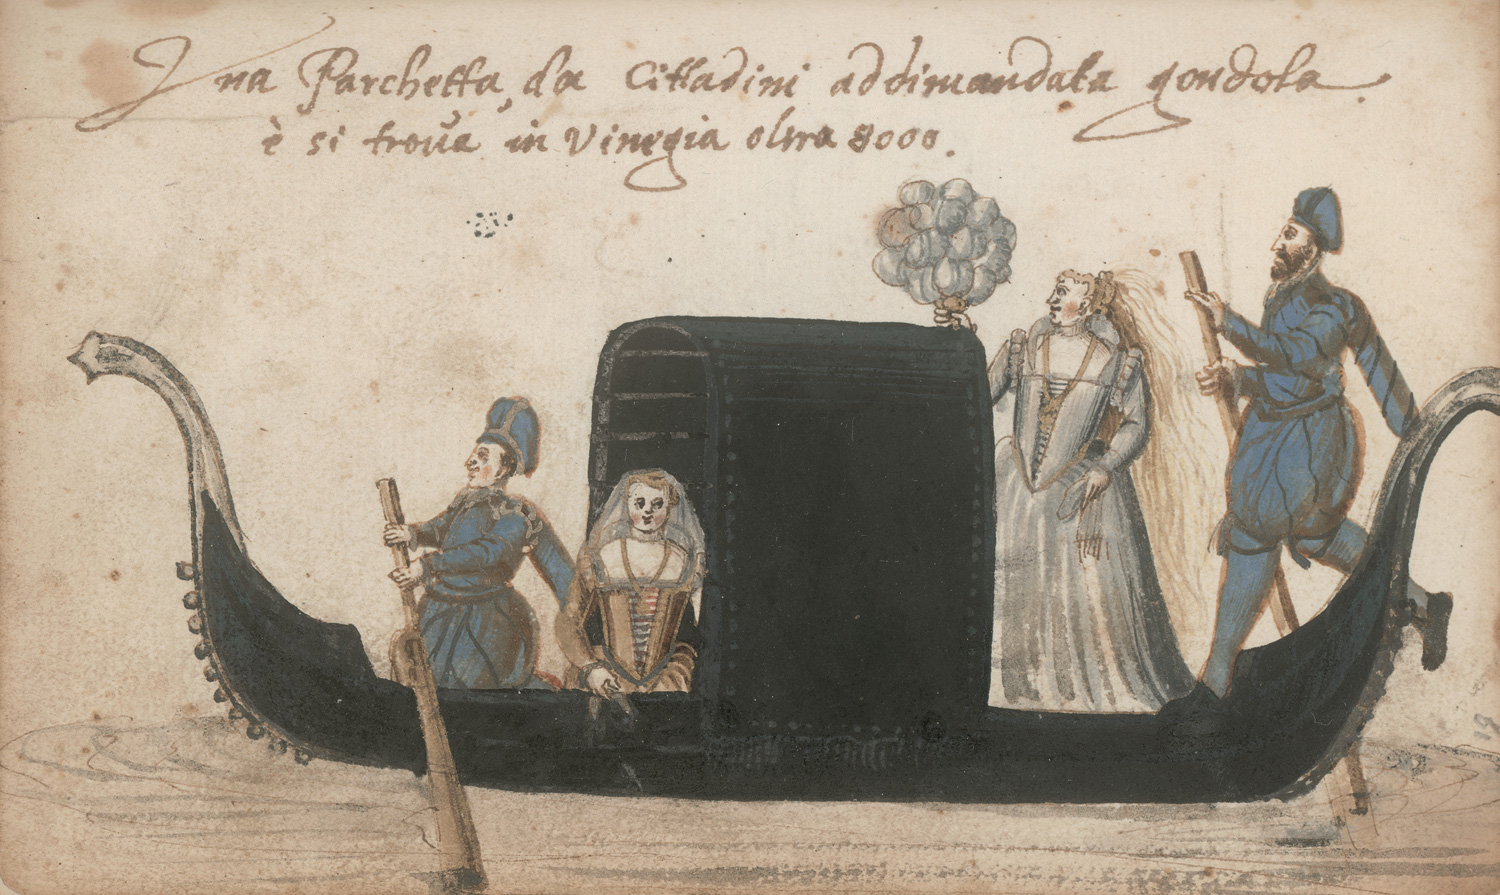 Vna Barchetta, da Cittadini addimandata gondola.
è si troua in Vinegia oltra 8000.